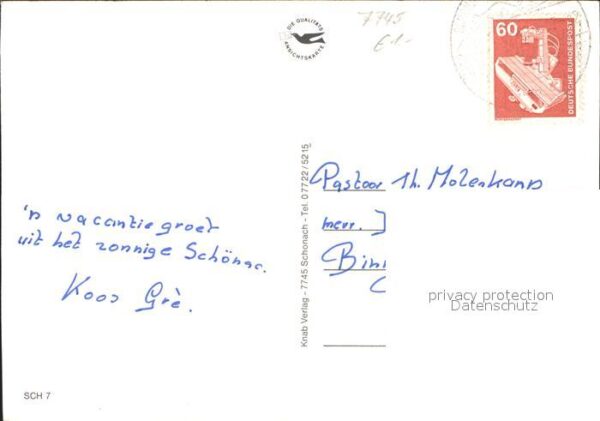 DIE QUALITÄTS
ANSICHTSKARTE
7745
€ 1-
60
DEUTSCHE BUNDESPOST
Pastoor Th. Molenkamp
Knab Verlag - 7745 Schonach - Tel. 07722/5215
'n vacantiegroet
uit het zonnige Schönac.
Koos Grè.
privacy protection
Datenschutz
SCH 7